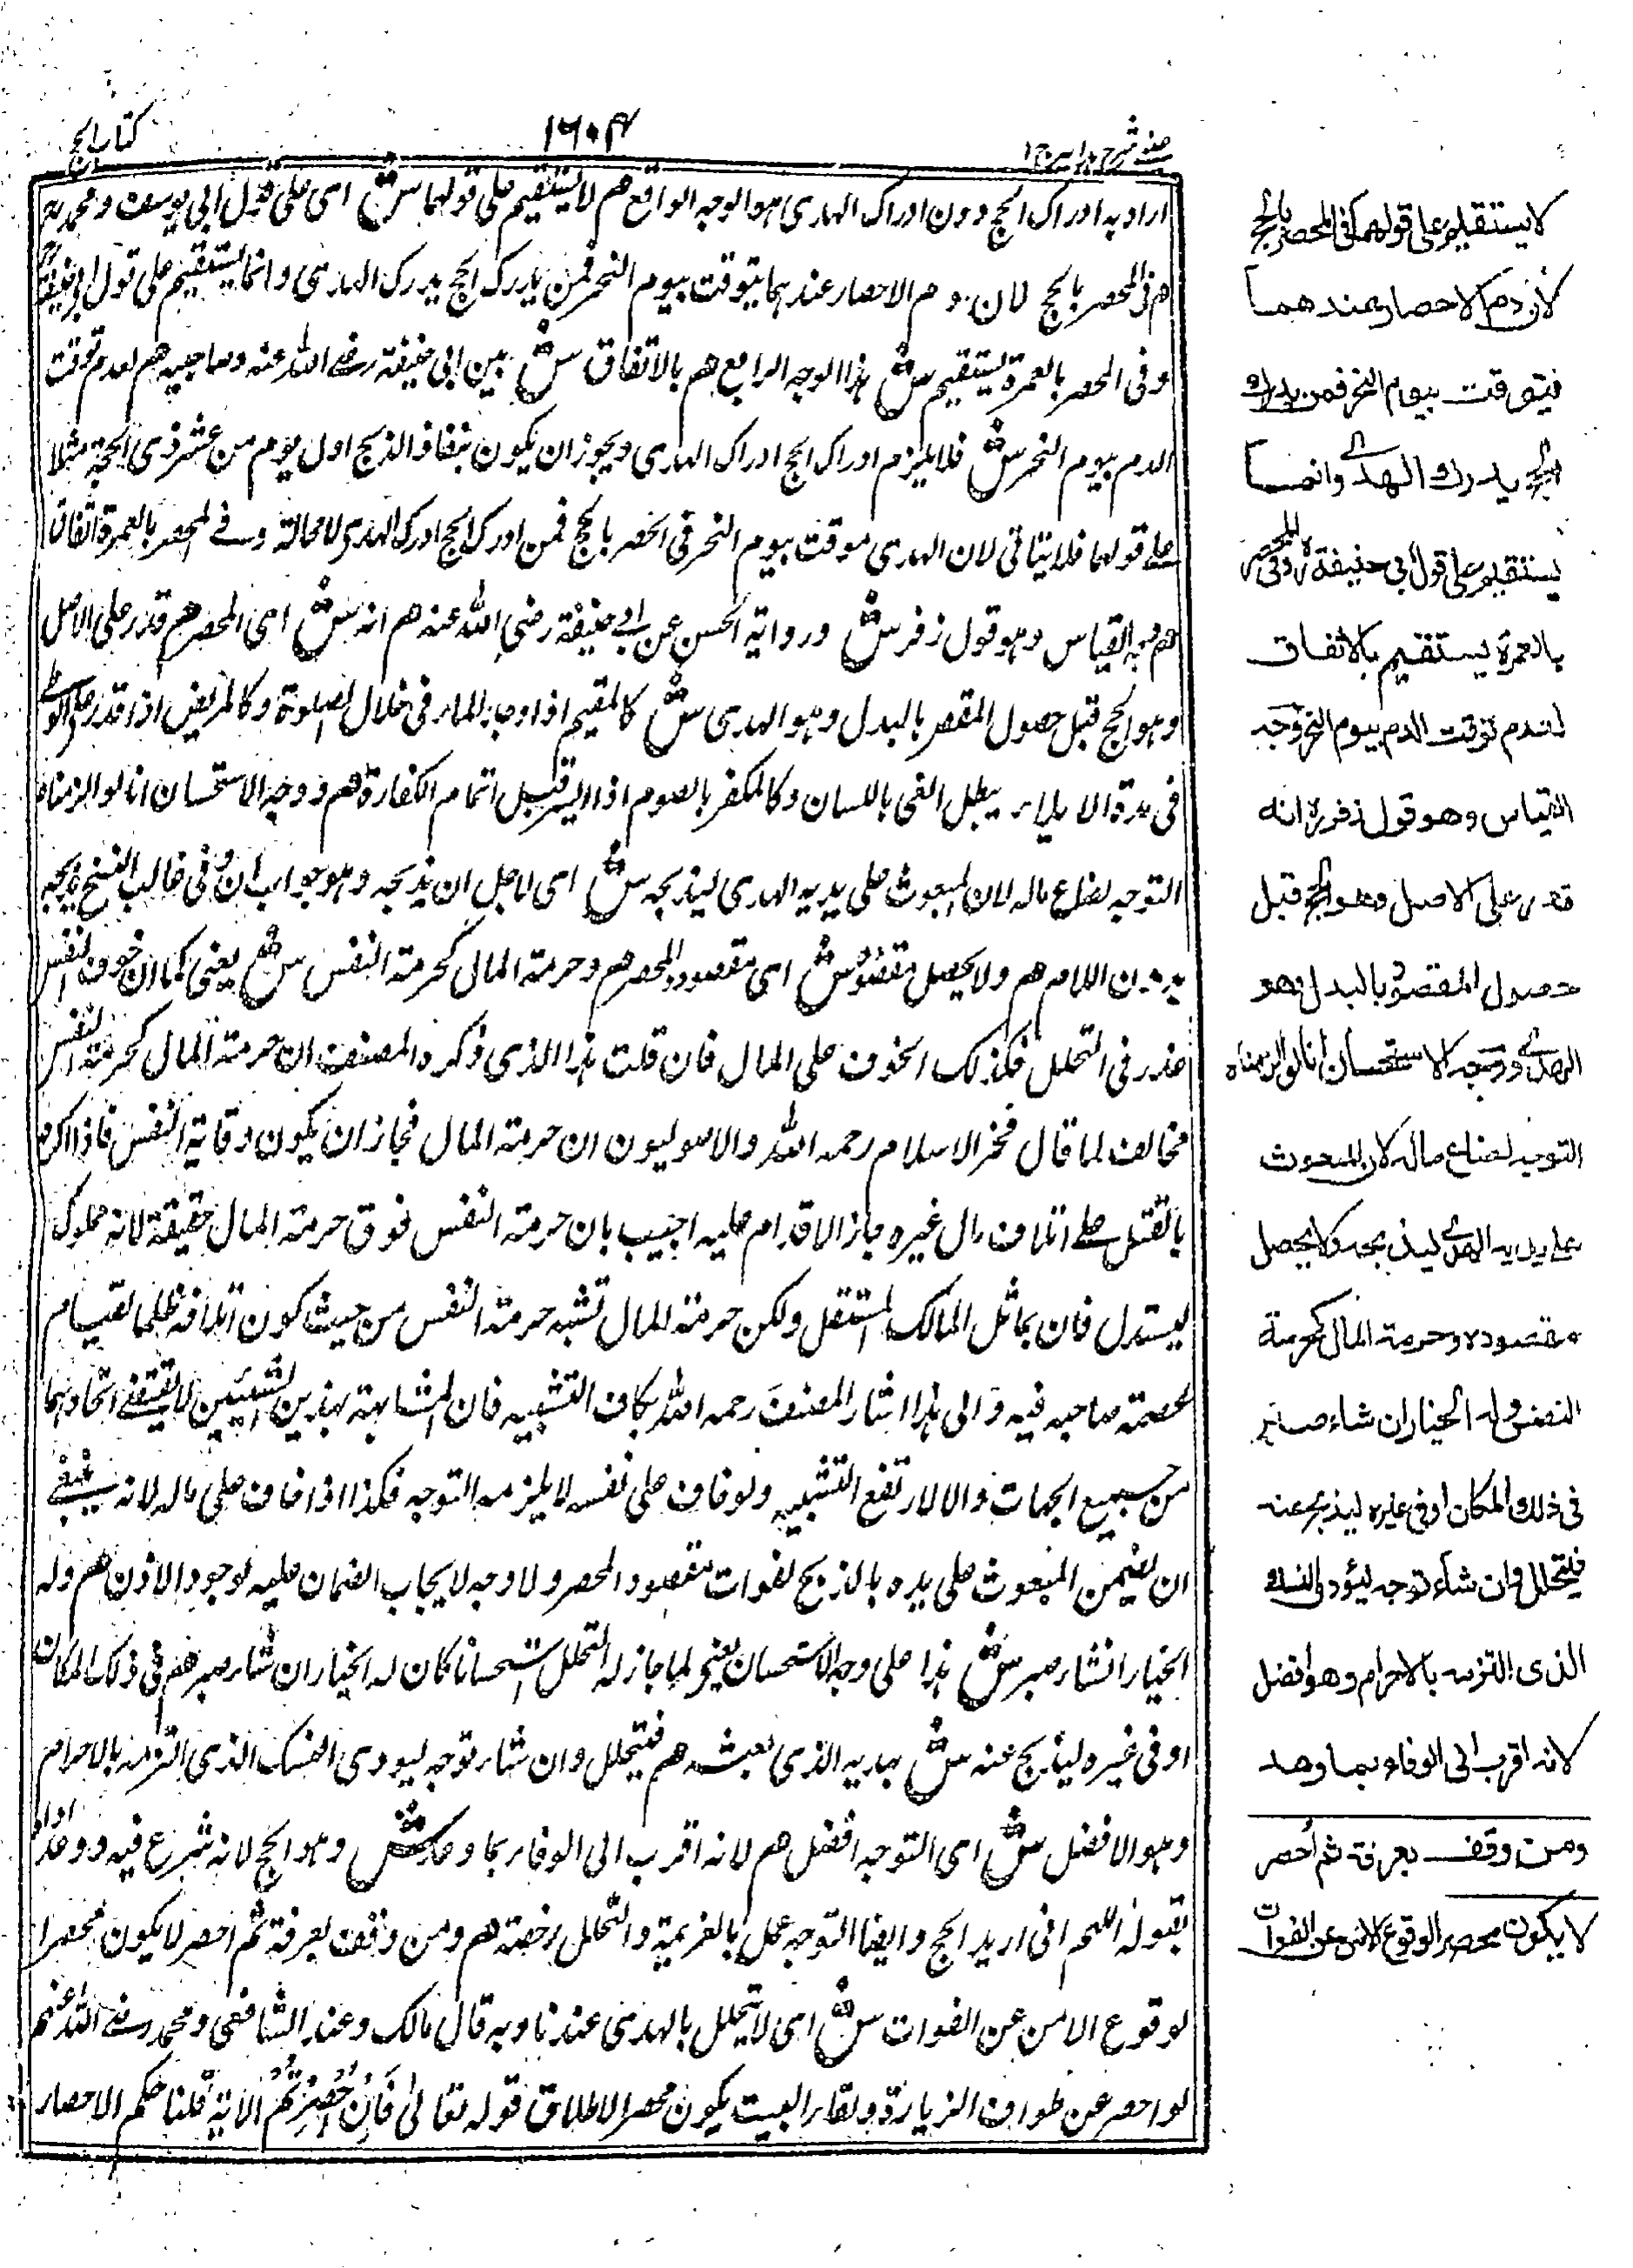 عینی شرح ہدایہ ج ١
١٦٠٤
کتاب الحج
اراد به ادراك الحج دون ادراك الهدى هو الوجه الواقع هم لا يستقيم على قولهما ش اى على قول ابى يوسف ومحمد رح
هم فى المحصر بالحج لان دم الاحصار عندهما يتوقت بيوم النحر فمن يدرك الحج يدرك الهدى وانما يستقيم على قول ابى حنيفة رح
وفى المحصر بالعمرة يستقيم ش هذا الوجه الرابع هم بالاتفاق ش بين ابى حنيفة رضى الله عنه وصاحبيه هم لعدم توقت
الدم بيوم النحر ش فلا يلزم ادراك الحج ادراك الهدى ويجوز ان يكون بنفاذ الذبح اول يوم من عشر ذى الحجة مثلا
على قولهما فلا يتاتى لان الهدى موقت بيوم النحر فى الحصر بالحج فمن ادرك الحج ادرك الهدى لا محالة وفى المحصر بالعمرة اتفاقا
هم وجه القياس وهو قول زفر ش ورواية الحسن عن ابى حنيفة رضى الله عنه هم انه ش اى المحصر هم قدر على الاصل
وهو الحج قبل حصول المقصر بالبدل وهو الهدى ش كالمقيم اذا وجد الماء فى خلال الصلوة وكالمريض اذا قدر على الوطى
فى مدة الايلاء يبطل الفى باللسان وكالمكفر بالصوم اذا ايسر قبل اتمام الكفارة هم ووجه الاستحسان انا لو الزمناه
التوجه لضاع ماله لان المبعوث على يديه الهدى ليذبحه ش اى لاجل ان يذبحه وهو جواب ان وفى غالب النسخ يذبحه
بدون اللام هم ولا يحصل مقصوده ش اى مقصود المحصر هم وحرمة المال كحرمة النفس ش يعنى كما ان خوف النفس
عذر فى التحلل فكذلك الخوف على المال فان قلت هذا الذى ذكره المصنف ان حرمة المال كحرمة النفس
مخالف لما قال فخر الاسلام رحمه الله والاصوليون ان حرمة المال فجاز ان يكون وقاية النفس فاذا اكره
بالقتل على اتلاف مال غيره جاز الاقدام عليه اجيب بان حرمة النفس فوق حرمة المال حقيقة لانه مملوك
ليستدل فان بماثل المالك المستقل ولكن حرمة المال تشبه حرمة النفس من حيث كون اتلافه ظلما لقيام
عصمة صاحبه فيه والى هذا اشار المصنف رحمه الله بكاف التشبيه فان المشابهة بهذين الشيئين لا يقتضى اتحادهما
من جميع الجهات والا لارتفع التشبيه ولو خاف على نفسه لا يلزمه التوجه فكذا اذا خاف على ماله لانه ينبغى
ان يضمن المبعوث على يده بالذبح لفوات مقصود المحصر ولا وجه لايجاب الضمان عليه لوجود الاذن هم وله
الخيار انشاء صبر ش هذا على وجه الاستحسان يعنى لما جاز له التحلل استحسانا كان له الخيار ان شاء صبر هم فى ذلك المكان
او فى غيره ليذبح عنه ش بهديه الذى بعثه هم فيتحلل وان شاء توجه ليودى النسك الذى التزمه بالاحرام
وهو الافضل ش اى التوجه افضل هم لانه اقرب الى الوفاء بما وعد ش وهو الحج لانه شرع فيه ووعد اداءه
بقوله اللهم انى اريد الحج وايضا التوجه عمل بالعزيمة والتحلل رخصة هم ومن وقف بعرفة ثم احصر لا يكون محصرا
لوقوع الامن عن الفوات ش اى لا يتحلل بالهدى عندنا وبه قال مالك وعند الشافعى ومحمد رضى الله عنهم
لو احصر عن طواف الزيارة ولقاء البيت يكون محصرا لاطلاق قوله تعالى فَاِنْ اُحْصِرْتُمْ الآية قلنا حكم الاحصار
لا يستقيم على قولهما فى المحصر بالحج
لان دم الاحصار عندهما
يتوقت بيوم النحر فمن يدرك
الحج يدرك الهدى وانما
يستقيم على قول ابى حنيفة ره وفى المحصر
بالعمرة يستقيم بالاتفاق
لعدم توقت الدم بيوم النحر وجه
القياس وهو قول زفر ره انه
قدر على الاصل وهو الحج قبل
حصول المقصود بالبدل وهو
الهدى ووجه الاستحسان انا لو الزمناه
التوجه لضاع ماله لان المبعوث
على يديه الهدى ليذبحه ولا يحصل
مقصوده وحرمة المال كحرمة
النفس وله الخيار ان شاء صبر
فى ذلك المكان او فى غيره ليذبح عنه
فيتحلل وان شاء توجه ليؤدى النسك
الذى التزمه بالاحرام وهو افضل
لانه اقرب الى الوفاء بما وعد
ومن وقف بعرفة ثم أحصر
لا يكون محصرا لوقوع الامن عن الفوات